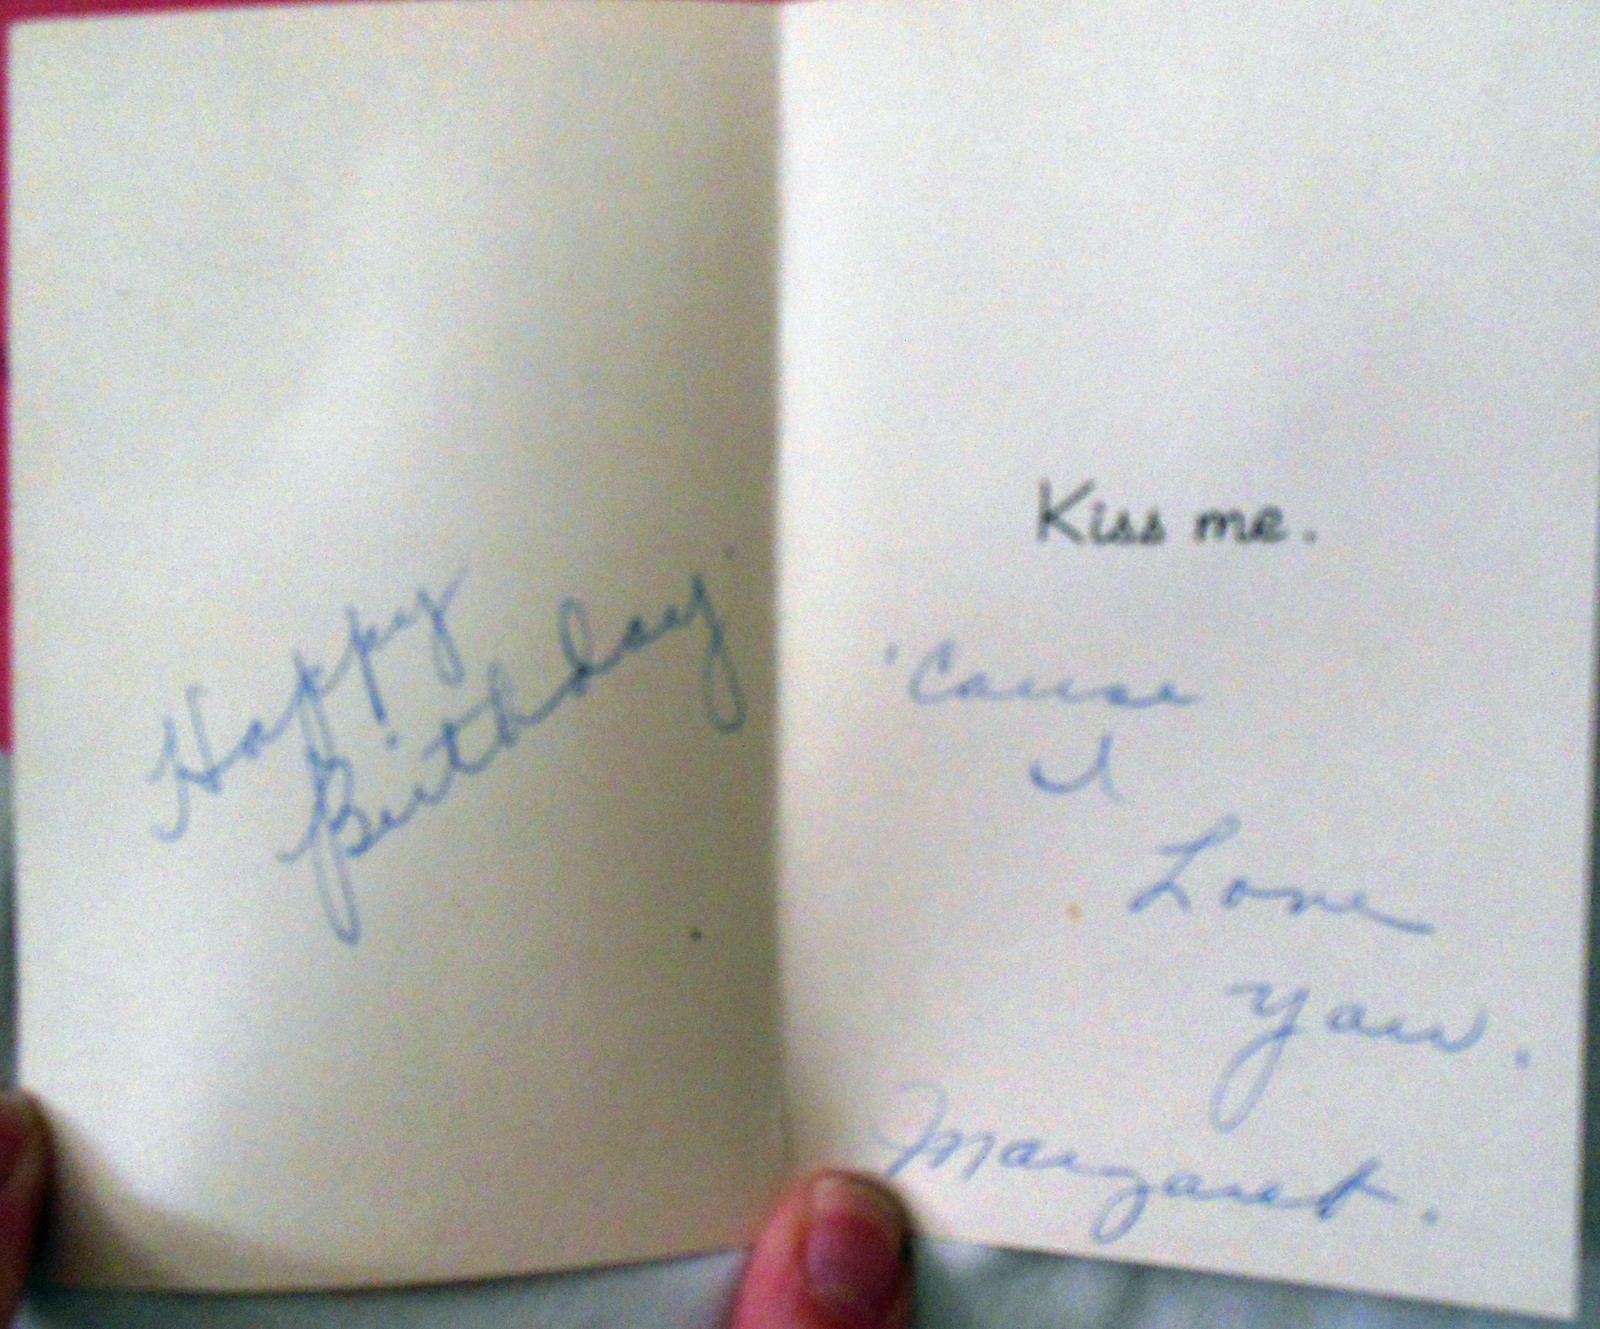 Happy
Birthday
Kiss me.
'Cause
I
Love
you.
Margaret.